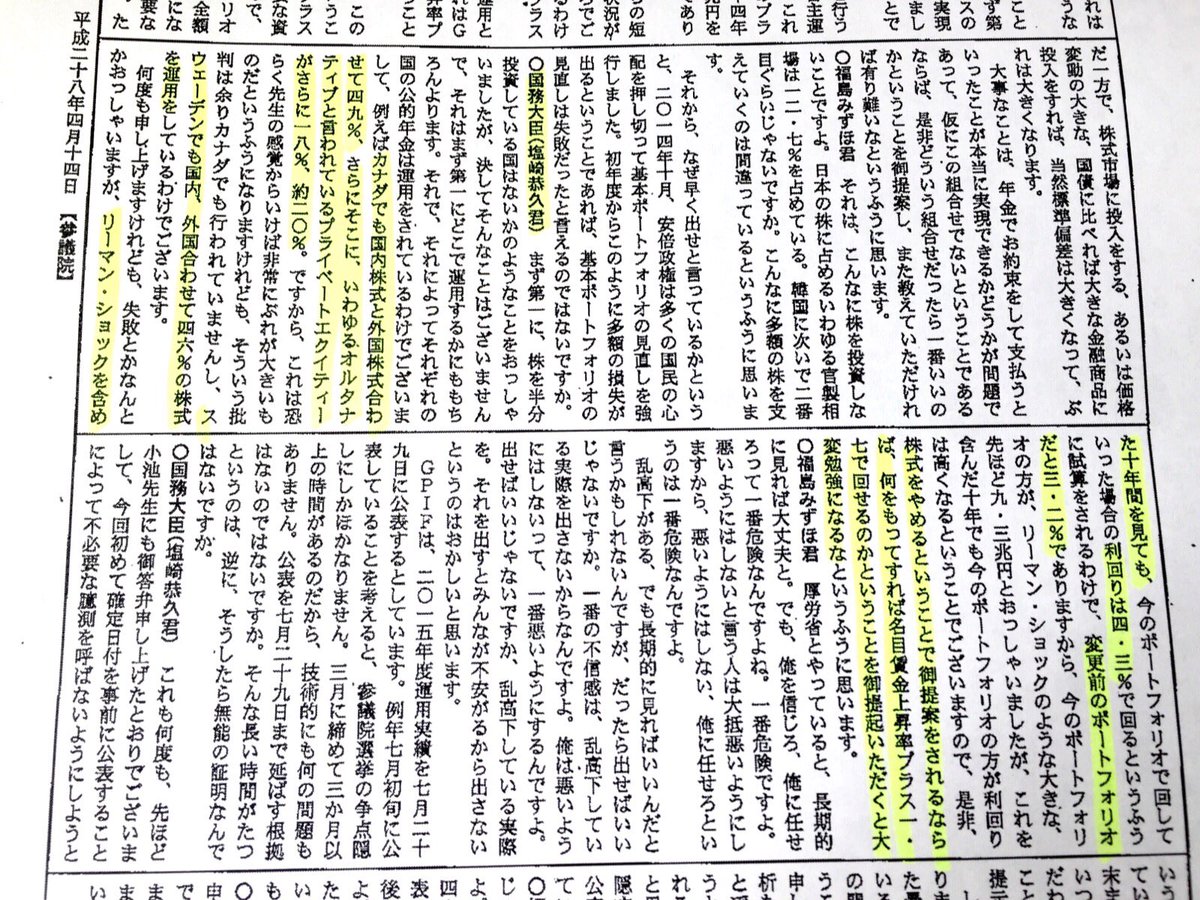 れは
うな
こと
ず第
スの
実現
とで
行う
主運
これ
プラ
十四年
兆円を
であり
らの短
状況が
でご
るわけ
プラス
運用と
れはG
昇率プ
うこと
この
ラス
うこ
な資
で、
金額
要な
た。
だ一方で、株式市場に投入をする、あるいは価格
変動の大きな、国債に比べれば大きな金融商品に
投入をすれば、当然標準偏差は大きくなって、ぶ
れは大きくなります。
大事なことは、年金でお約束をして支払うと
いったことが本当に実現できるかどうかが問題で
あって、仮にこの組合せでないということである
ならば、是非どういう組合せだったら一番いいの
かということを御提案し、また教えていただけれ
ば有り難いなというふうに思います。
○福島みずほ君 それは、こんなに株を投資しな
いことですよ。日本の株に占めるいわゆる官製相
場は一二・七%を占めている。韓国に次いで二番
目ぐらいじゃないですか。こんなに多額の株を支
えていくのは間違っているというふうに思いま
す。
それから、なぜ早く出せと言っているかという
と、二〇一四年十月、安倍政権は多くの国民の心
配を押し切って基本ポートフォリオの見直しを強
行しました。初年度からこのように多額の損失が
出るということであれば、基本ポートフォリオの
見直しは失敗だったと言えるのではないですか。
○国務大臣(塩崎恭久君) まず第一に、株を半分
投資している国はないかのようなことをおっしゃ
いましたが、決してそんなことはございません
で、それはまず第一にどこで運用するかにももち
ろんよります。それで、それによってそれぞれの
国の公的年金は運用をされているわけでございま
して、例えばカナダでも国内株式と外国株式合わ
せて四九%、さらにそこに、いわゆるオルタナ
ティブと言われているプライベートエクイティー
がさらに一八%、約二〇%。ですから、これは恐
らく先生の感覚からいけば非常にぶれが大きいも
のだというふうになりますけれども、そういう批
判は余りカナダでも行われていませんし、ス
ウェーデンでも国内、外国合わせて四六%の株式
を運用をしているわけでございます。
何度も申し上げますけれども、失敗とかなんと
かおっしゃいますが、リーマン・ショックを含め
平成二十八年四月十四日 【参議院】
た十年間を見ても、今のポートフォリオで回して
いった場合の利回りは四・三%で回るというふう
に試算をされるわけで、変更前のポートフォリオ
だと三・二%でありますから、今のポートフォリ
オの方が、リーマン・ショックのような大きな、
先ほど九・三兆円とおっしゃいましたが、これを
含んだ十年でも今のポートフォリオの方が利回り
は高くなるということでございますので、是非、
株式をやめるということで御提案をされるなら
ば、何をもってすれば名目賃金上昇率プラス一・
七で回せるのかということを御提起いただくと大
変勉強になるなというふうに思います。
○福島みずほ君 厚労省とやっていると、長期的
に見れば大丈夫と。でも、俺を信じろ、俺に任せ
ろって一番危険なんですよね。一番危険ですよ。
悪いようにはしないと言う人は大抵悪いようにし
ますから、悪いようにはしない、俺に任せろとい
うのは一番危険なんですよ。
乱高下がある、でも長期的に見ればいいんだと
言うかもしれないんですが、だったら出せばいい
じゃないですか。一番の不信感は、乱高下してい
る実際を出さないからなんですよ。俺は悪いよう
にはしないって、一番悪いようにするんですよ。
出せばいいじゃないですか、乱高下している実際
を。それを出すとみんなが不安がるから出さない
というのはおかしいと思います。
GPIFは、二〇一五年度運用実績を七月二十
九日に公表するとしています。例年七月初旬に公
表していることを考えると、参議院選挙の争点隠
しにしかほかなりません。三月に締めて三か月以
上の時間があるのだから、技術的にも何の問題も
ありません。公表を七月二十九日まで延ばす根拠
はないのではないですか。そんな長い時間がたつ
というのは、逆に、そうしたら無能の証明なんで
はないですか。
○国務大臣(塩崎恭久君) これも何度も、先ほど
小池先生にも御答弁申し上げたとおりでございま
して、今回初めて確定日付を事前に公表すること
によって不必要な臆測を呼ばないようにしようと